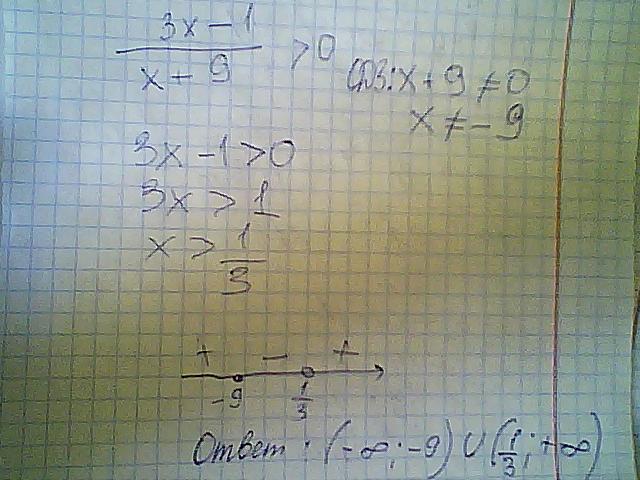 3x - 1
x + 9
> 0
ОДЗ: x + 9 ≠ 0
x ≠ - 9
3x - 1 > 0
3x > 1
x > 1/3
+ - +
-9 1/3
Ответ: (-∞; -9) ∪ (1/3; +∞)